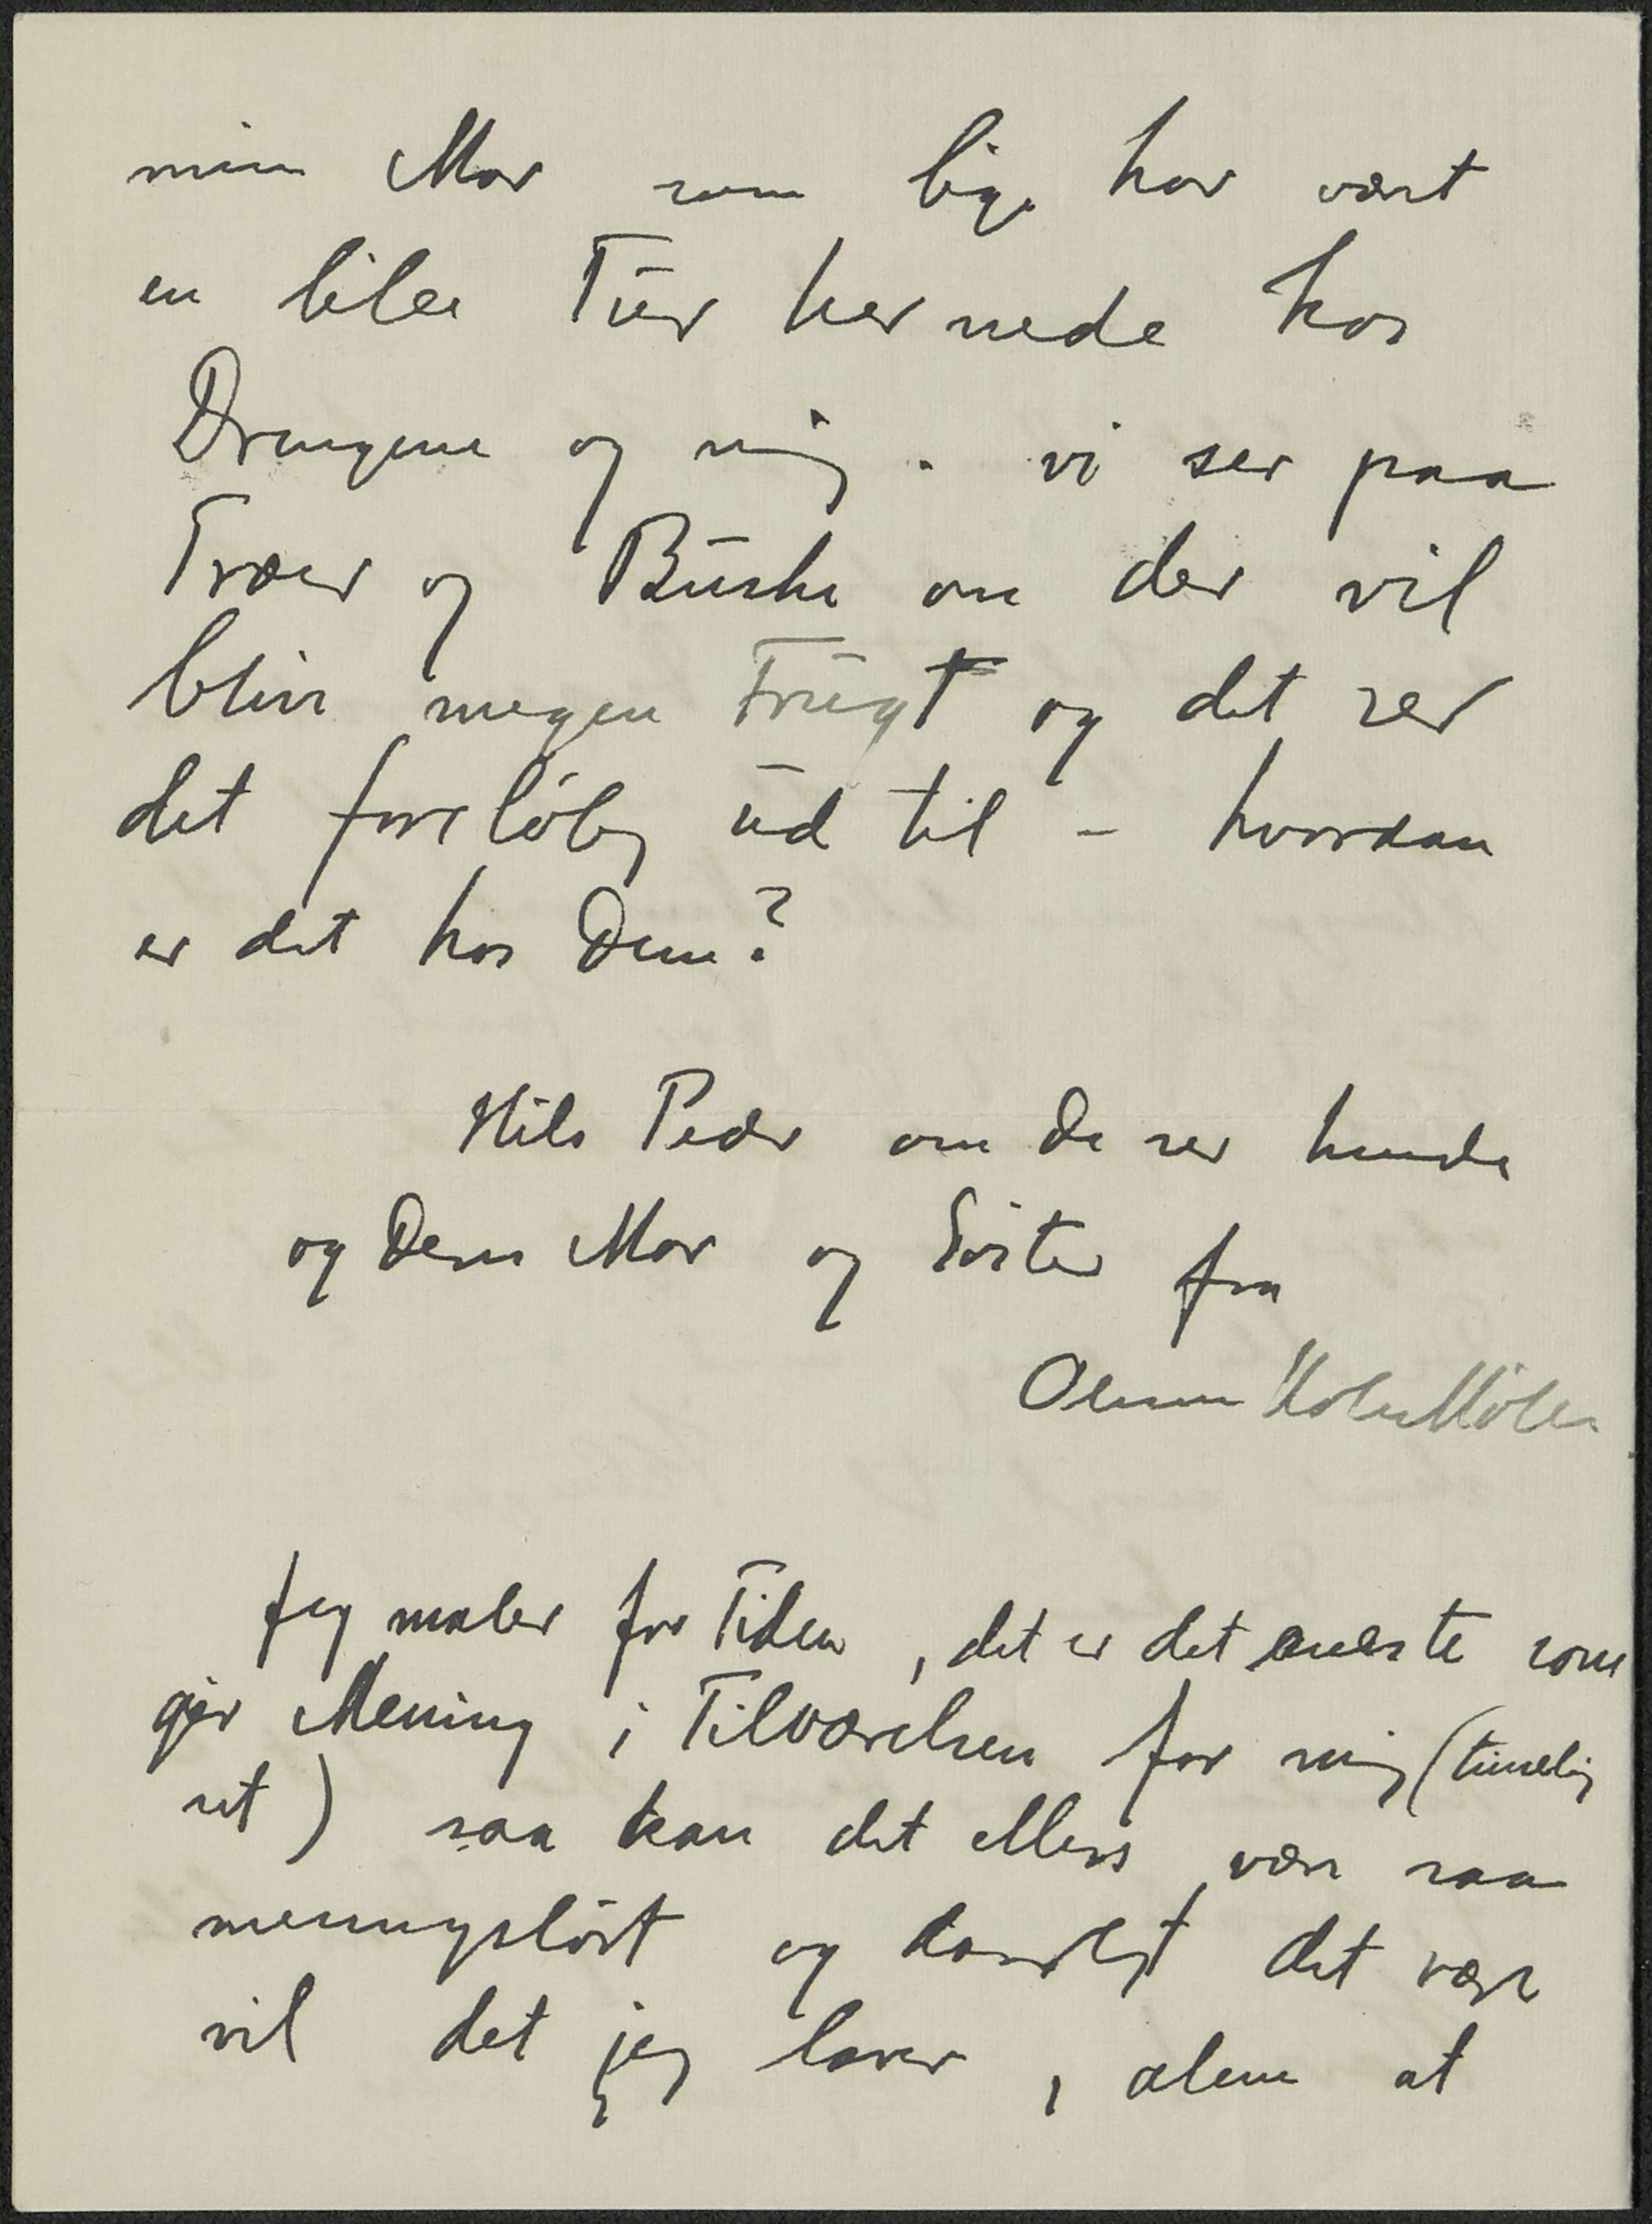 min Mor som lige har vært
en lille Tur her nede hos
Drengene og mig. vi ser paa
Træer og Buske om der vil
blive megen Frugt og det ser
det foreløbig ud til – hvordan
er det hos Dem?
Hils Peder om De ser hende
og Deres Mor og Søster fra
Olivia Holm Møller
Jeg maler for Tiden, det er det eneste som
gir Mening i Tilværelsen for mig (timelig
set) saa kan det ellers være saa
meningsløst og daarligt det være
vil det jeg laver, alene at